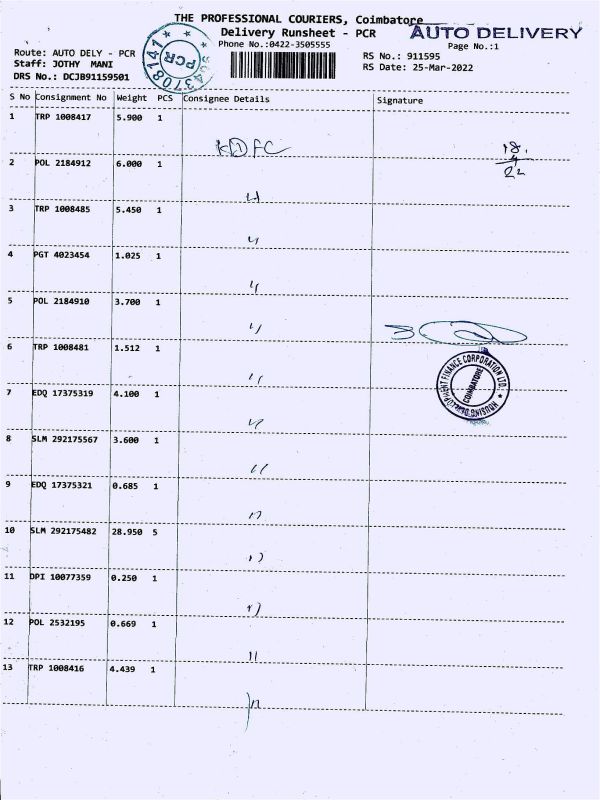 THE PROFESSIONAL COURIERS, Coimbatore
Delivery Runsheet - PCR
AUTO DELIVERY
Phone No.:0422-3505555
Page No.:1
Route: AUTO DELY - PCR
Staff: JOTHY MANI
DRS No.: DCJB91159501
RS No.: 911595
RS Date: 25-Mar-2022
PCR
S No Consignment No Weight PCS Consignee Details Signature
1 TRP 1008417 5.900 1
HDFC
2 POL 2184912 6.000 1
3 TRP 1008485 5.450 1
4 PGT 4023454 1.025 1
5 POL 2184910 3.700 1
6 TRP 1008481 1.512 1
HOUSING DEVELOPMENT FINANCE CORPORATION LTD.
COIMBATORE
7 EDQ 17375319 4.100 1
8 SLM 292175567 3.600 1
9 EDQ 17375321 0.685 1
10 SLM 292175482 28.950 5
11 DPI 10077359 0.250 1
12 POL 2532195 0.669 1
13 TRP 1008416 4.439 1